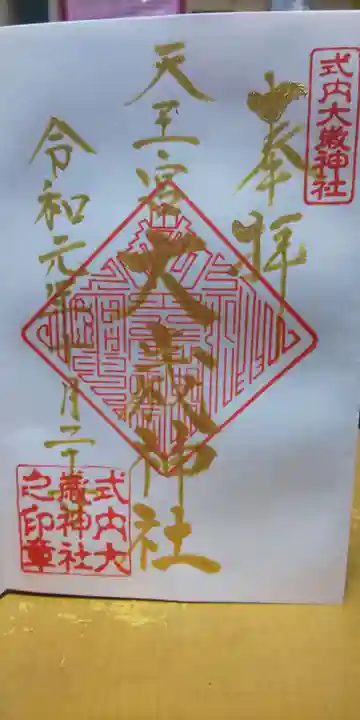 式内大歳神社
奉拝
天王宮大歳神社
令和元年 月二十
式内大
歳神社
之印章